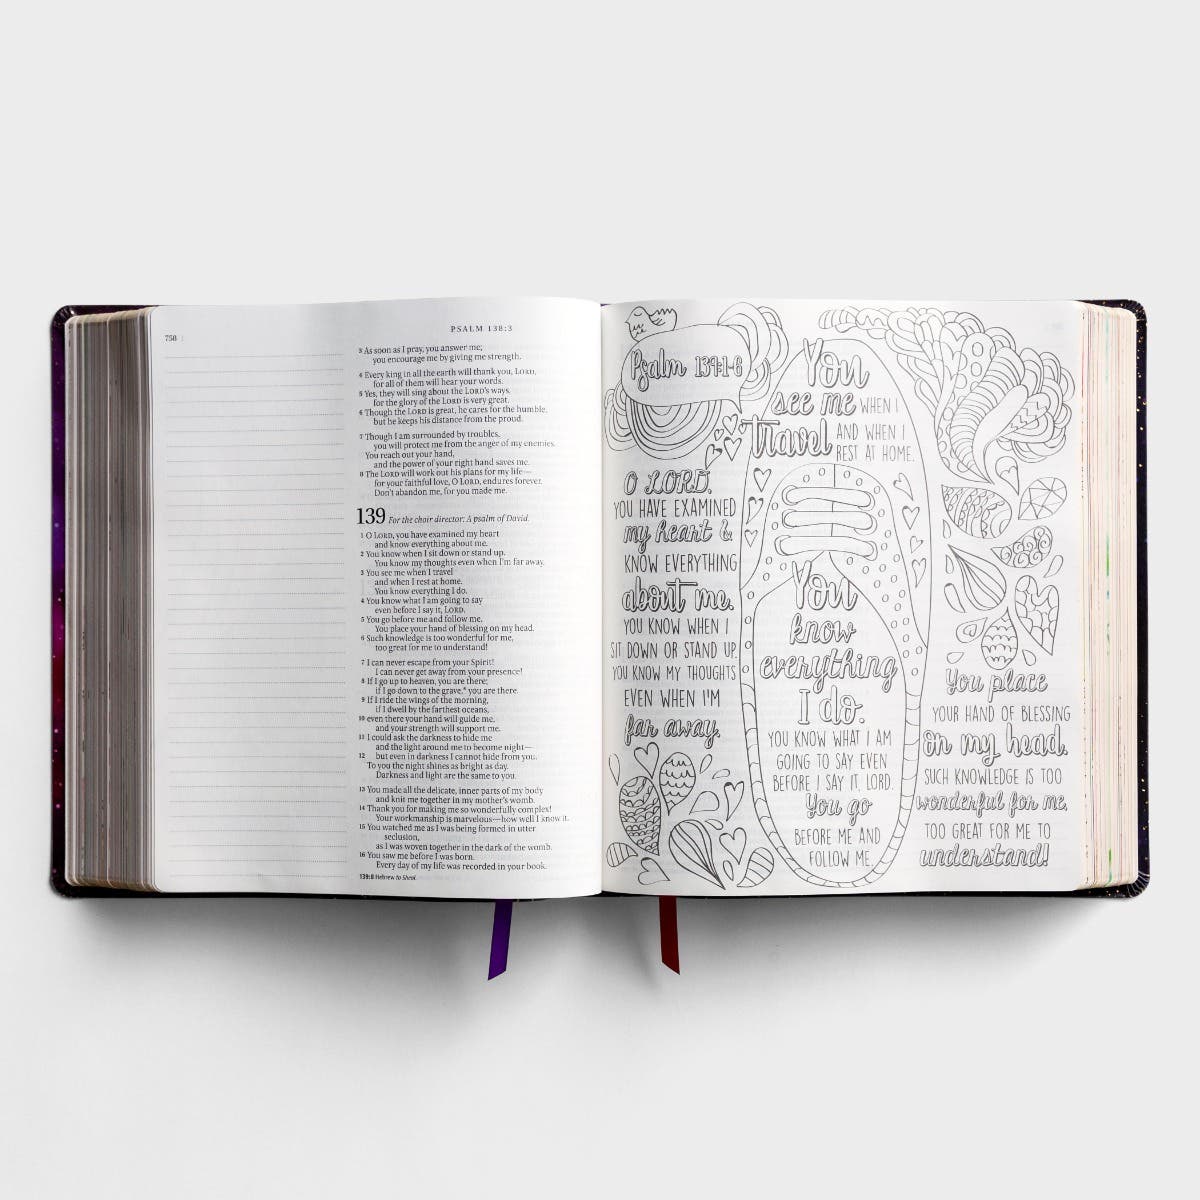 758
PSALM 138:3
3 As soon as I pray, you answer me;
you encourage me by giving me strength.
4 Every king in all the earth will thank you, LORD,
for all of them will hear your words.
5 Yes, they will sing about the LORD's ways,
for the glory of the LORD is very great.
6 Though the LORD is great, he cares for the humble,
but he keeps his distance from the proud.
7 Though I am surrounded by troubles,
you will protect me from the anger of my enemies.
You reach out your hand,
and the power of your right hand saves me.
8 The LORD will work out his plans for my life—
for your faithful love, O LORD, endures forever.
Don't abandon me, for you made me.
139 For the choir director: A psalm of David.
1 O LORD, you have examined my heart
and know everything about me.
2 You know when I sit down or stand up.
You know my thoughts even when I'm far away.
3 You see me when I travel
and when I rest at home.
You know everything I do.
4 You know what I am going to say
even before I say it, LORD.
5 You go before me and follow me.
You place your hand of blessing on my head.
6 Such knowledge is too wonderful for me,
too great for me to understand!
7 I can never escape from your Spirit!
I can never get away from your presence!
8 If I go up to heaven, you are there;
if I go down to the grave,* you are there.
9 If I ride the wings of the morning,
if I dwell by the farthest oceans,
10 even there your hand will guide me,
and your strength will support me.
11 I could ask the darkness to hide me
and the light around me to become night—
12 but even in darkness I cannot hide from you.
To you the night shines as bright as day.
Darkness and light are the same to you.
13 You made all the delicate, inner parts of my body
and knit me together in my mother's womb.
14 Thank you for making me so wonderfully complex!
Your workmanship is marvelous—how well I know it.
15 You watched me as I was being formed in utter
seclusion,
as I was woven together in the dark of the womb.
16 You saw me before I was born.
Every day of my life was recorded in your book.
139:8 Hebrew to Sheol.
Psalm 139:1-6
O LORD,
YOU HAVE EXAMINED
my heart &
KNOW EVERYTHING
about me.
YOU KNOW WHEN I
SIT DOWN OR STAND UP.
YOU KNOW MY THOUGHTS
EVEN WHEN I'M
far away.
You
see me WHEN I
Travel AND WHEN I
REST AT HOME.
You
know
everything
I do.
YOU KNOW WHAT I AM
GOING TO SAY EVEN
BEFORE I SAY IT, LORD.
You go
BEFORE ME AND
FOLLOW ME.
You place
YOUR HAND OF BLESSING
on my head.
SUCH KNOWLEDGE IS TOO
wonderful for me,
TOO GREAT FOR ME TO
understand!